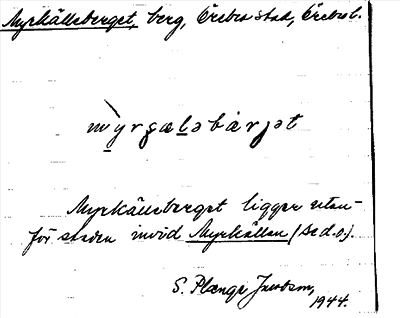 Myrkällsberget, berg, Örebro stad, Örebro l.
myrçæləbärjət
Myrkällsberget ligger utan-
för staden invid Myrkällan (se d.o.).
S. Plænge Jacobson,
1944.